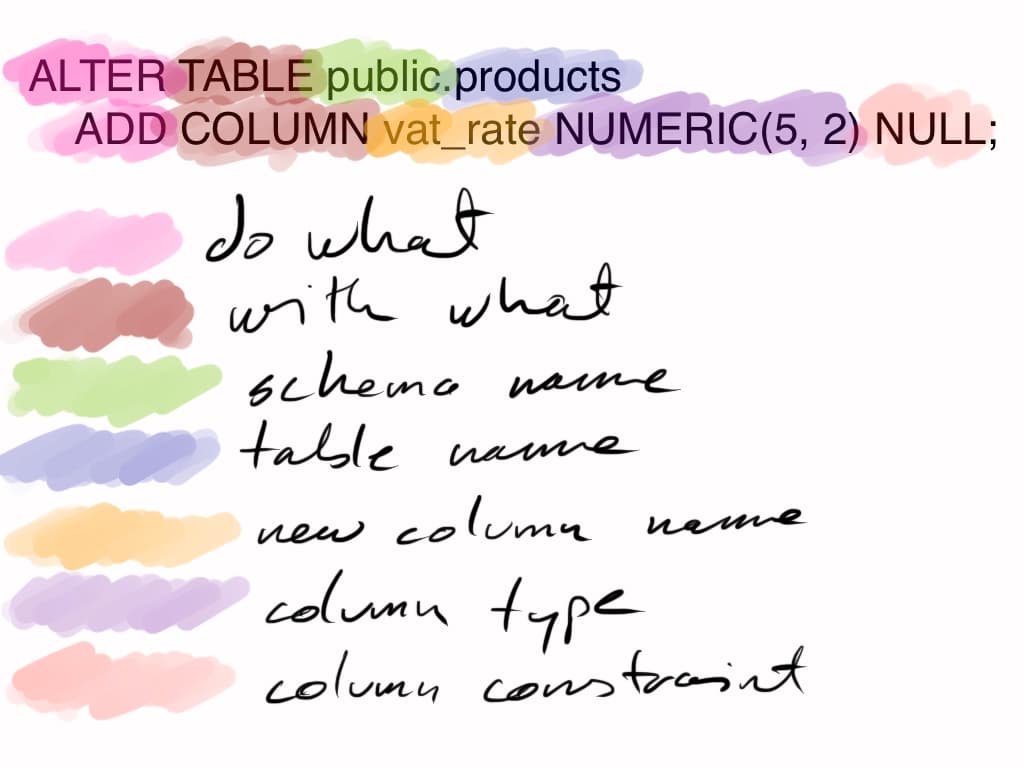 ALTER TABLE public.products
ADD COLUMN vat_rate NUMERIC(5, 2) NULL;
do what
with what
schema name
table name
new column name
column type
column constraint